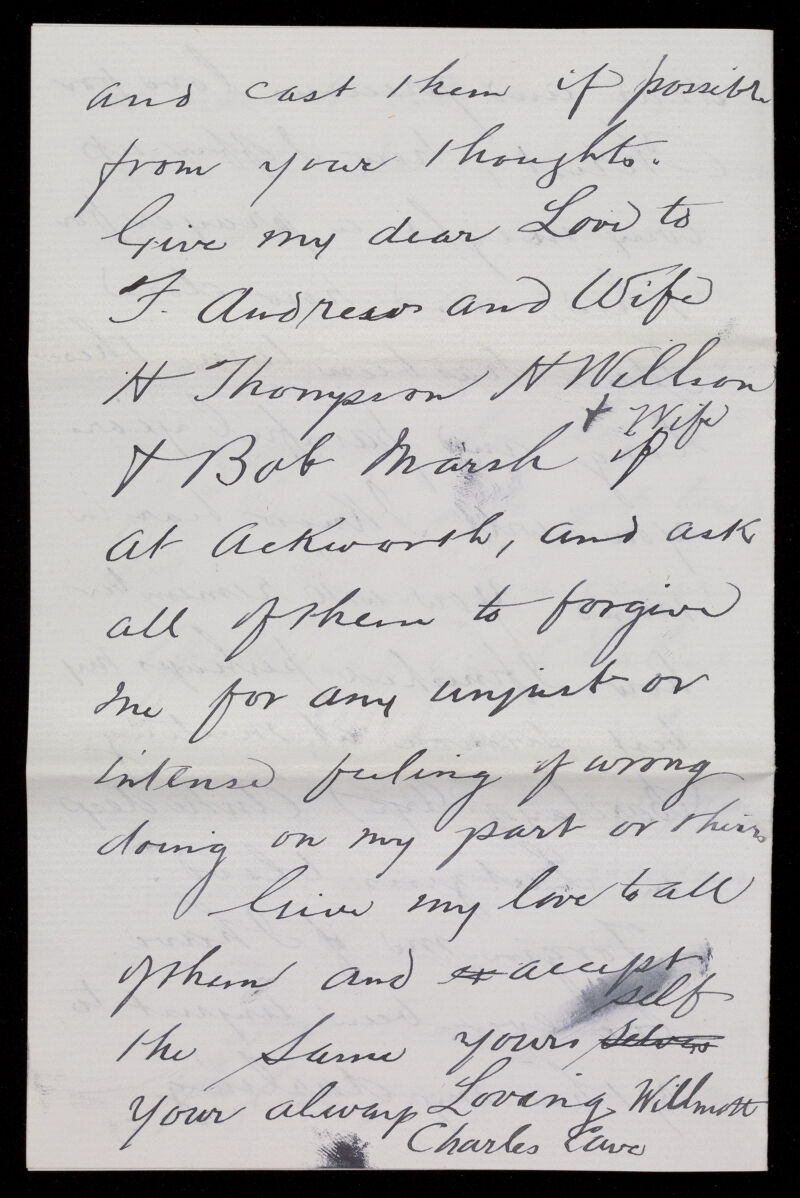 and cast them if possible
from your thoughts.
Give my dear Love to
F. Andrews and Wife
H Thompson H Willson
+ Wife
& Bob Marsh if
at Ackworth, and ask
all of them to forgive
me for any unjust or
intense feeling of wrong
doing on my part or theirs
Give my love to all
of them and accept
self
the same yours selves
your always Loving Willmott
Charles Cave